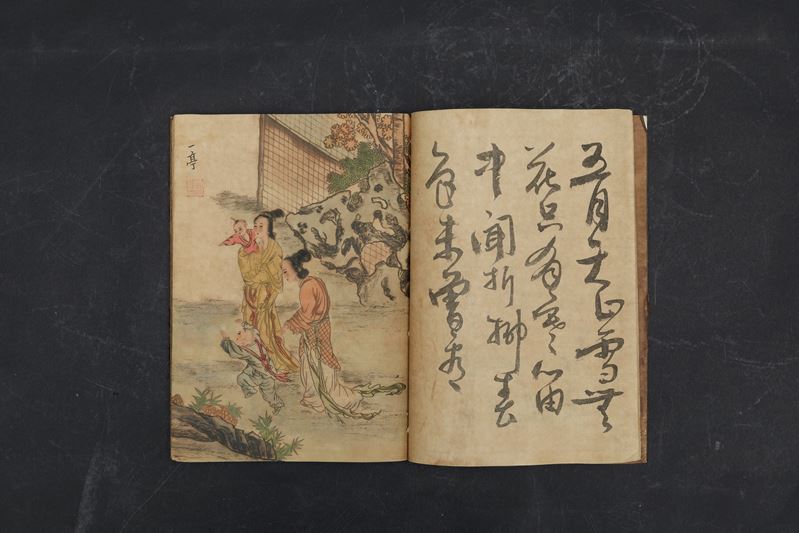 五月天山雪無
花只有寒笛
中聞折柳春
色未曾看
一亭